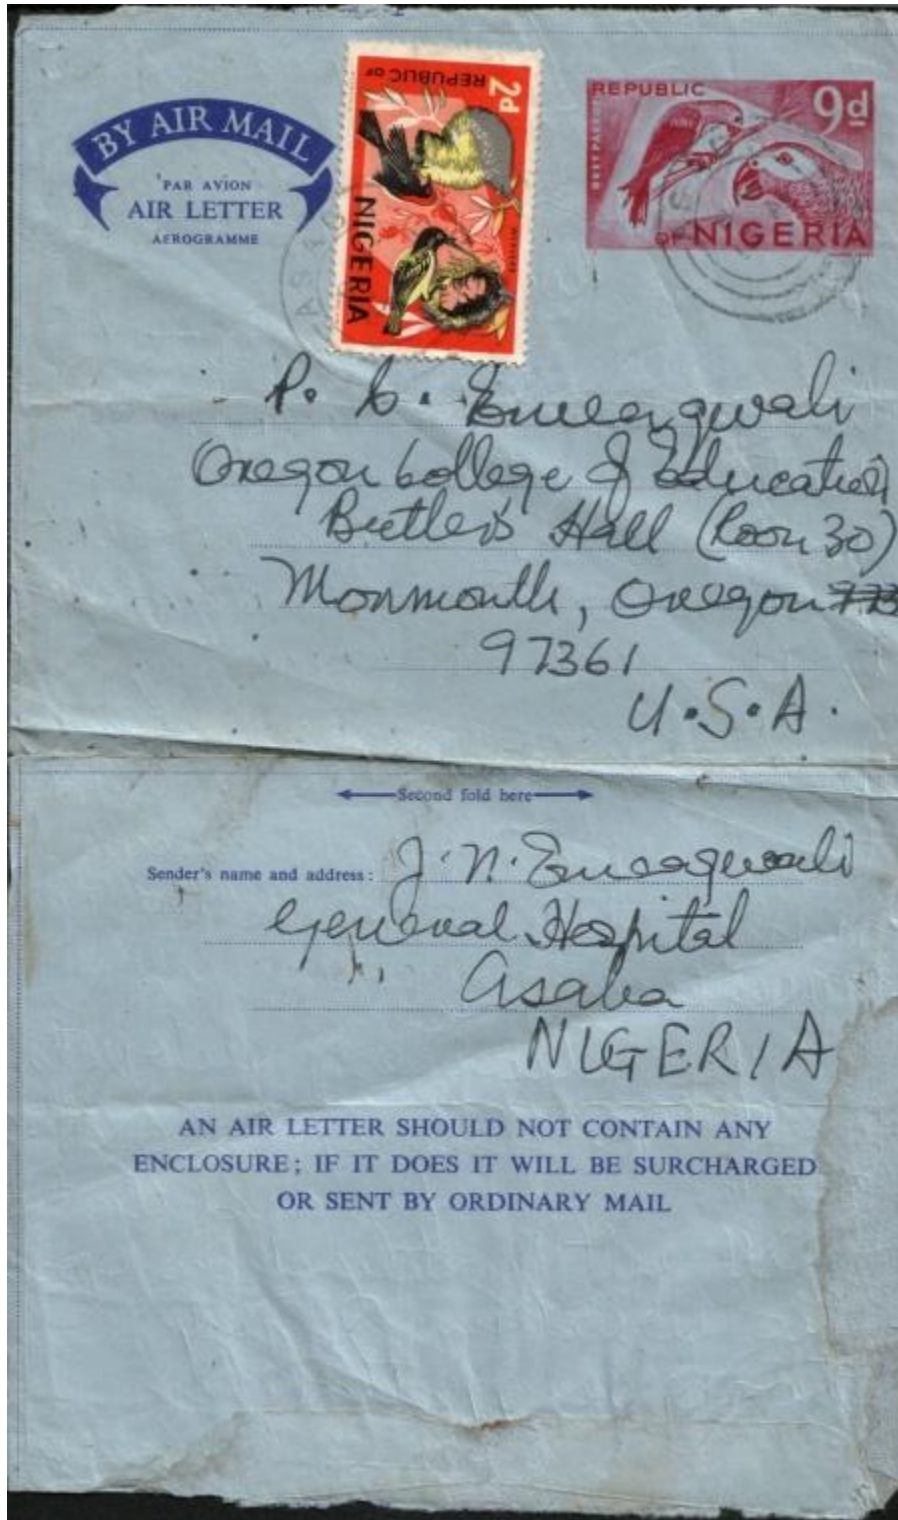 BY AIR MAIL
PAR AVION
AIR LETTER
AEROGRAMME
2d
REPUBLIC OF
NIGERIA
WEAVERS
REPUBLIC
9d
GREY PARROTS
OF NIGERIA
P. C. Emeagwali
Oregon College of Education
Butler's Hall (Room 30)
Monmouth, Oregon
97361
U.S.A.
Second fold here
Sender's name and address: J. N. Emeagwali
General Hospital
Asaba
NIGERIA
AN AIR LETTER SHOULD NOT CONTAIN ANY
ENCLOSURE; IF IT DOES IT WILL BE SURCHARGED
OR SENT BY ORDINARY MAIL